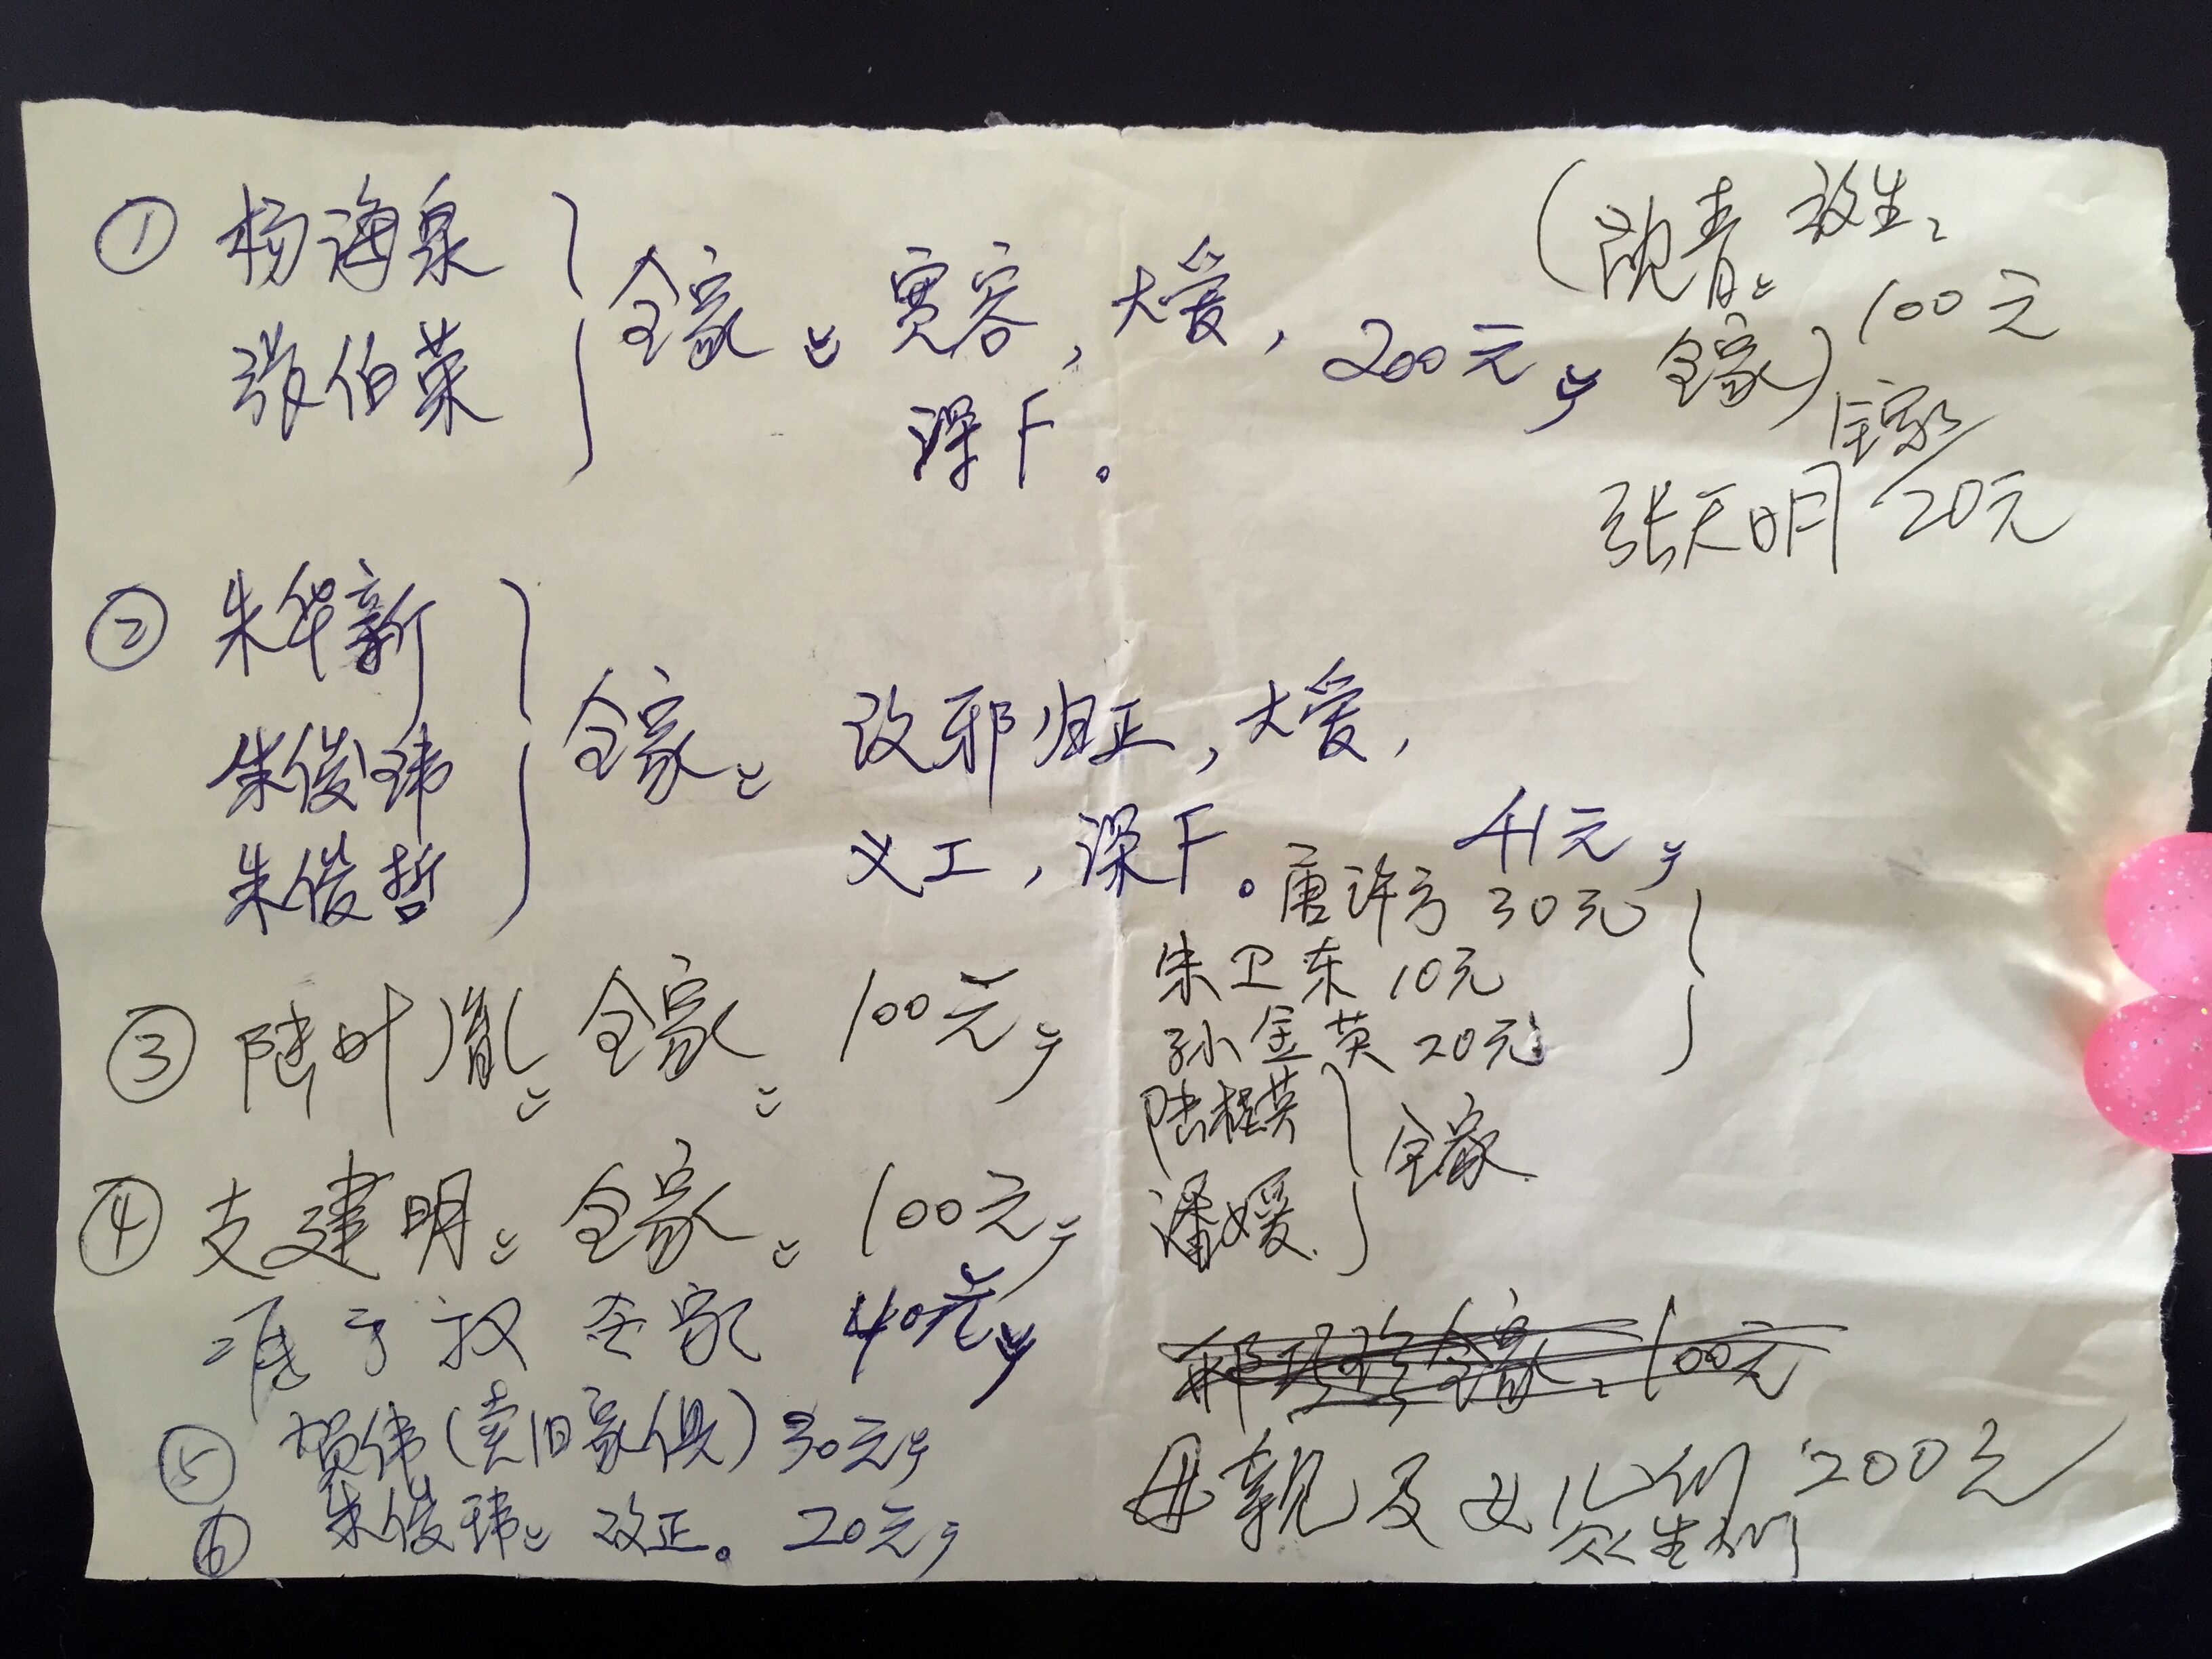 ① 杨海泉
张伯英
全家 宽容，大爱，200元
深F。
放生
100元
全家)
全家
张天明 20元
② 朱华新
朱俊玮
朱俊哲
全家 改邪归正，大爱，
义工，深F。 41元
唐许方 30元
朱卫东 10元
孙金英 20元
③ 陆叶胤 全家 100元
潘媛
全家
④ 支建明 全家 100元
全家 40元
⑤ 贺伟(卖旧家俱)30元
⑥ 朱俊玮 改正。20元
全家 100元
母亲及女儿们 200元
众生们